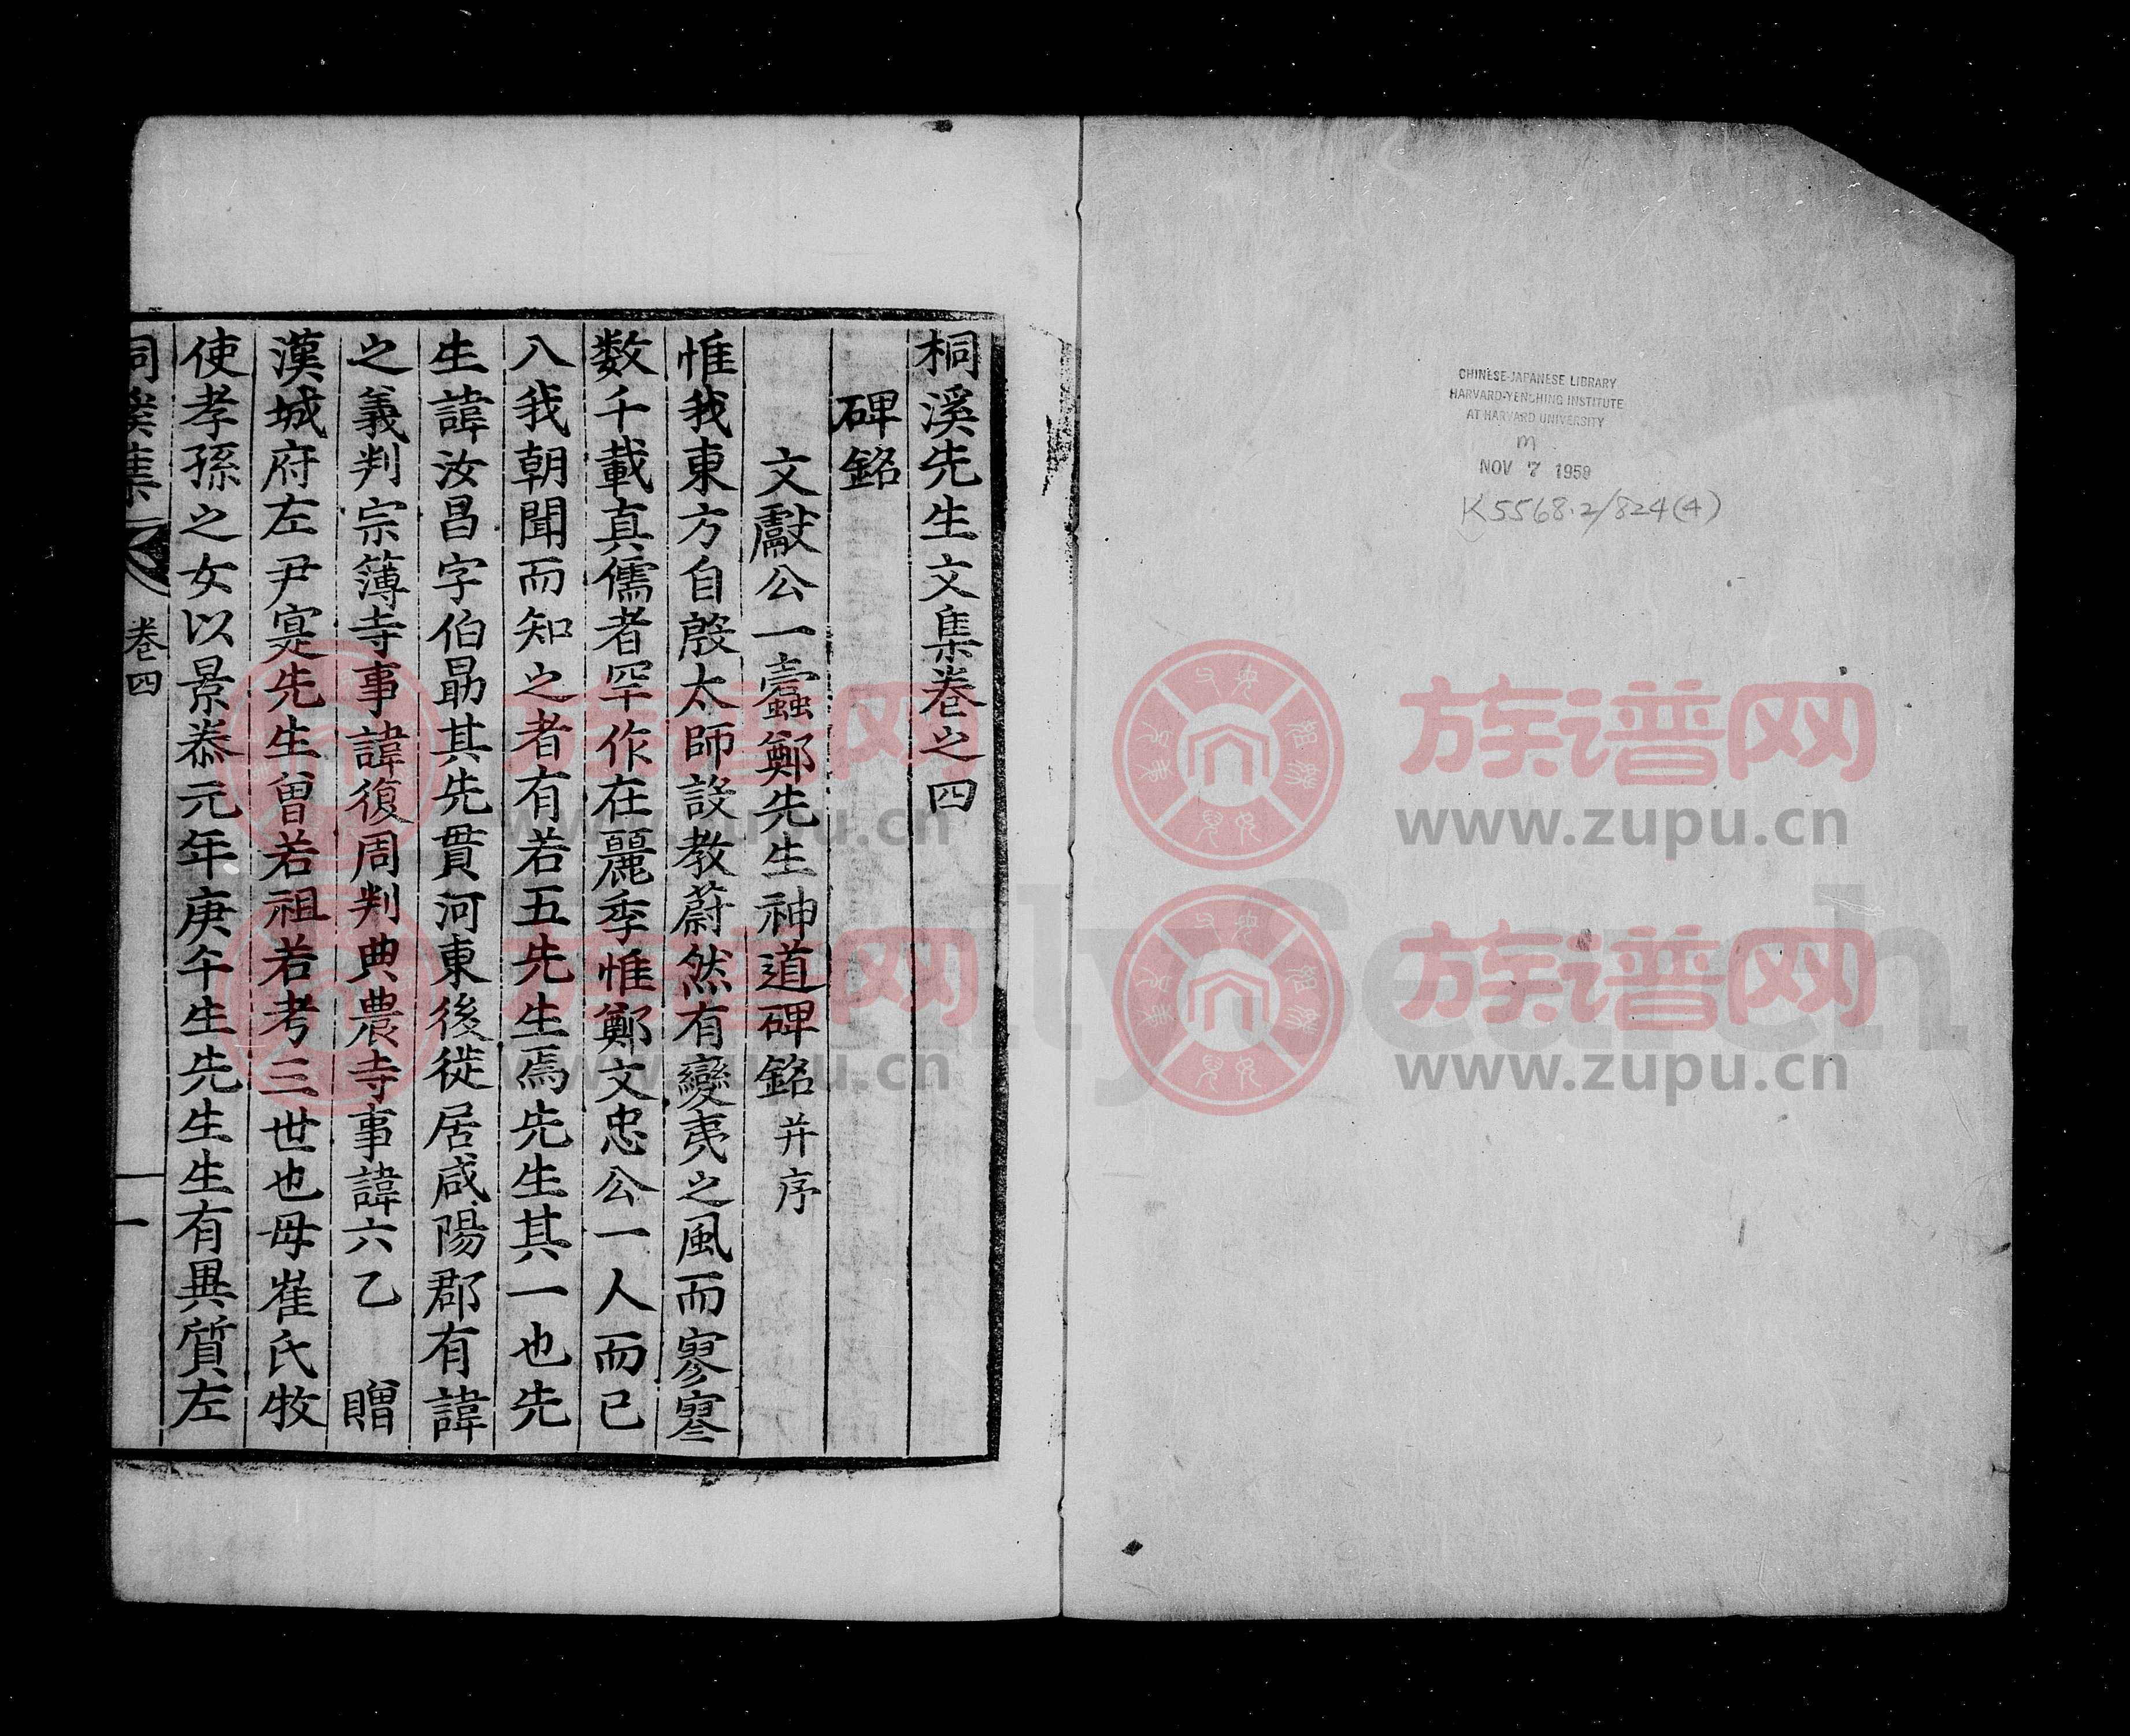 CHINESE-JAPANESE LIBRARY
HARVARD-YENCHING INSTITUTE
AT HARVARD UNIVERSITY
m
NOV 7 1959
K5568.2/824(4)
桐溪先生文集卷之四
碑銘
文獻公一蠹鄭先生神道碑銘 并序
惟我東方自殷太師設教蔚然有變夷之風而寥寥
数千載真儒者罕作在麗季惟鄭文忠公一人而已
入我朝聞而知之者有若五先生焉先生其一也先
生諱汝昌字伯勗其先貫河東後徙居咸陽郡有諱
之義判宗簿寺事諱復周判典農寺事諱六乙 贈
漢城府左尹寔先生曾若祖若考三世也母崔氏牧
使孝孫之女以景泰元年庚午生先生生有異質左
桐溪集 卷四 一
族谱网
www.zupu.cn
族谱网
www.zupu.cn
族谱网
www.zupu.cn
族谱网
www.zupu.cn